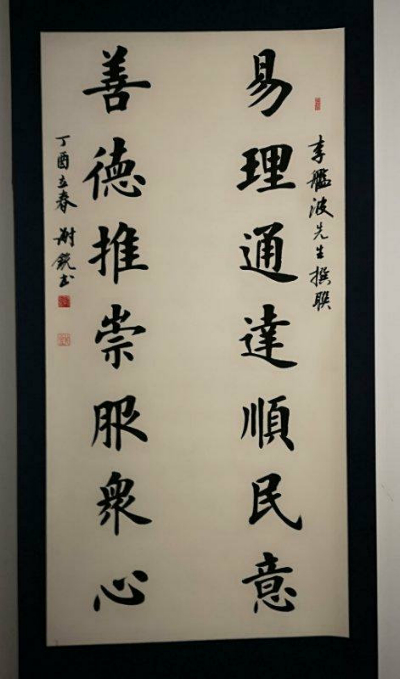 李艦波先生撰联
易理通達順民意
善德推崇服衆心
丁酉立春尉銳书